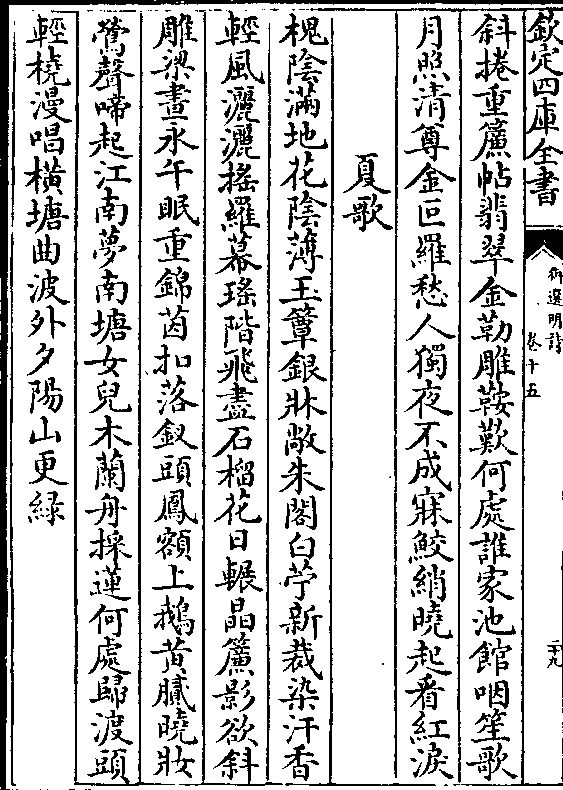 欽定四庫全書
御選明詩 卷十五
二十九
斜捲重簾帖翡翠金勒雕鞍歎何處誰家池館咽笙歌
月照清尊金叵羅愁人獨夜不成寐鮫綃曉起看紅淚
夏歌
槐陰滿地花陰薄玉簟銀牀敞朱閣白苧新裁染汗香
輕風灑灑摇羅幕瑤階飛盡石榴花日輾晶簾影欲斜
雕梁晝永午眠重錦茵扣落釵頭鳳額上鵝黄膩曉妝
鶯聲啼起江南夢南塘女兒木蘭舟採蓮何處歸渡頭
輕橈漫唱橫塘曲波外夕陽山更緑